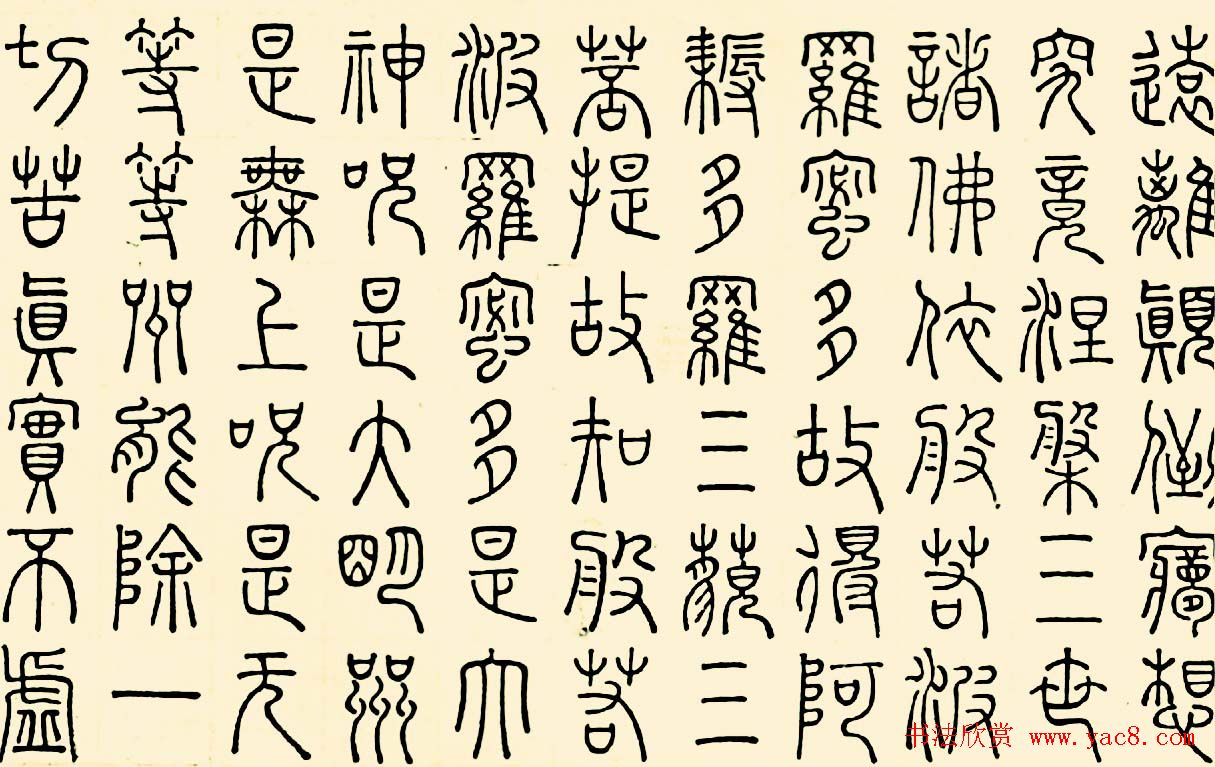 遠離顛倒夢想
究竟涅槃三世
諸佛依般若波
羅蜜多故得阿
耨多羅三藐三
菩提故知般若
波羅蜜多是大
神呪是大明呪
是無上呪是无
等等呪能除一
切苦眞實不虛
书法欣赏 www.yac8.com